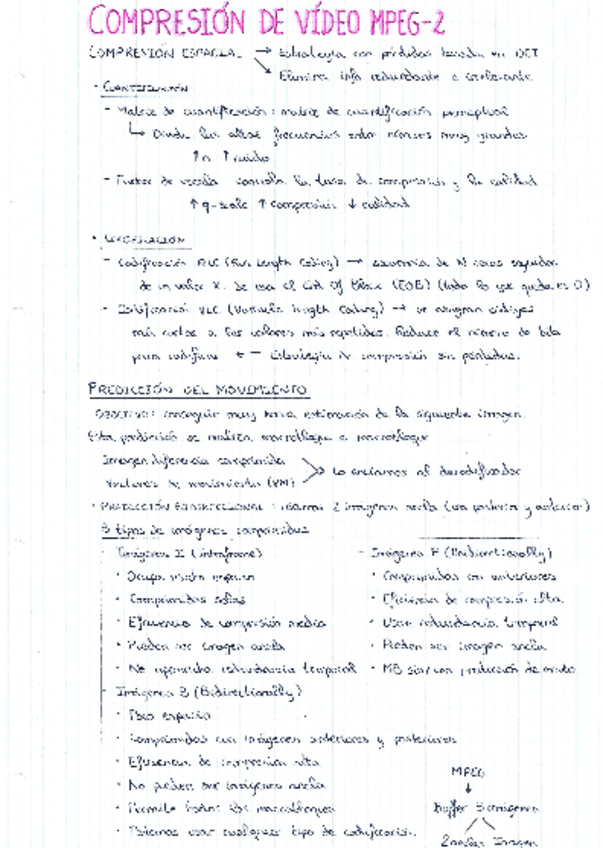 COMPRESIÓN DE VÍDEO MPEG-2
COMPRESIÓN ESPACIAL → Estrategia con pérdidas basada en DCT
↘ Elimina info redundante o irrelevante
· CUANTIFICACIÓN
- Matriz de cuantificación: matriz de cuantificación perceptual
↳ Donde las altas frecuencias están números muy grandes
↑n ↑ruido
- Factor de escala controla la tasa de compresión y la calidad
↑ q-scale ↑ compresión ↓ calidad
· CODIFICACIÓN
- Codificación RLC (Run Length Coding) → secuencia de N ceros seguidos
de un valor X. Se usa el End Of Block (EOB) (todo lo que queda es 0)
- Codificación VLC (Variable Length Coding) → se asignan códigos
más cortos a los valores más repetidos. Reduce el número de bits
para codificar ← Estrategia de compresión sin pérdidas.
PREDICCIÓN DEL MOVIMIENTO
OBJETIVO: conseguir muy buena estimación de la siguiente imagen.
Esta predicción se realiza macrobloque a macrobloque
Imagen diferencia comprimida
Vectores de movimiento (VM)
Lo enviamos al decodificador
· PREDICCIÓN BIDIRECCIONAL: 2 imágenes ancla (una posterior y anterior)
3 tipos de imágenes comprimidas
- Imágenes I (intraframe)
· Ocupa mucho espacio
· Comprimidas solas
· Eficiencia de compresión media
· Pueden ser imagen ancla
· No aprovecha redundancia temporal
- Imágenes P (Unidirectionally)
· Comprimidas con anteriores
· Eficiencia de compresión alta.
· Usan redundancia temporal
· Pueden ser imagen ancla.
· MB sin/con predicción de movto
- Imágenes B (Bidirectionally)
· Poco espacio
· Comprimidas con imágenes anteriores y posteriores
· Eficiencia de compresión alta
· No pueden ser imágenes ancla
· Permite todos los macrobloques
· Podemos usar cualquier tipo de codificación.
MPEG
↓
Buffer 3 imágenes
2 anclas Imagen